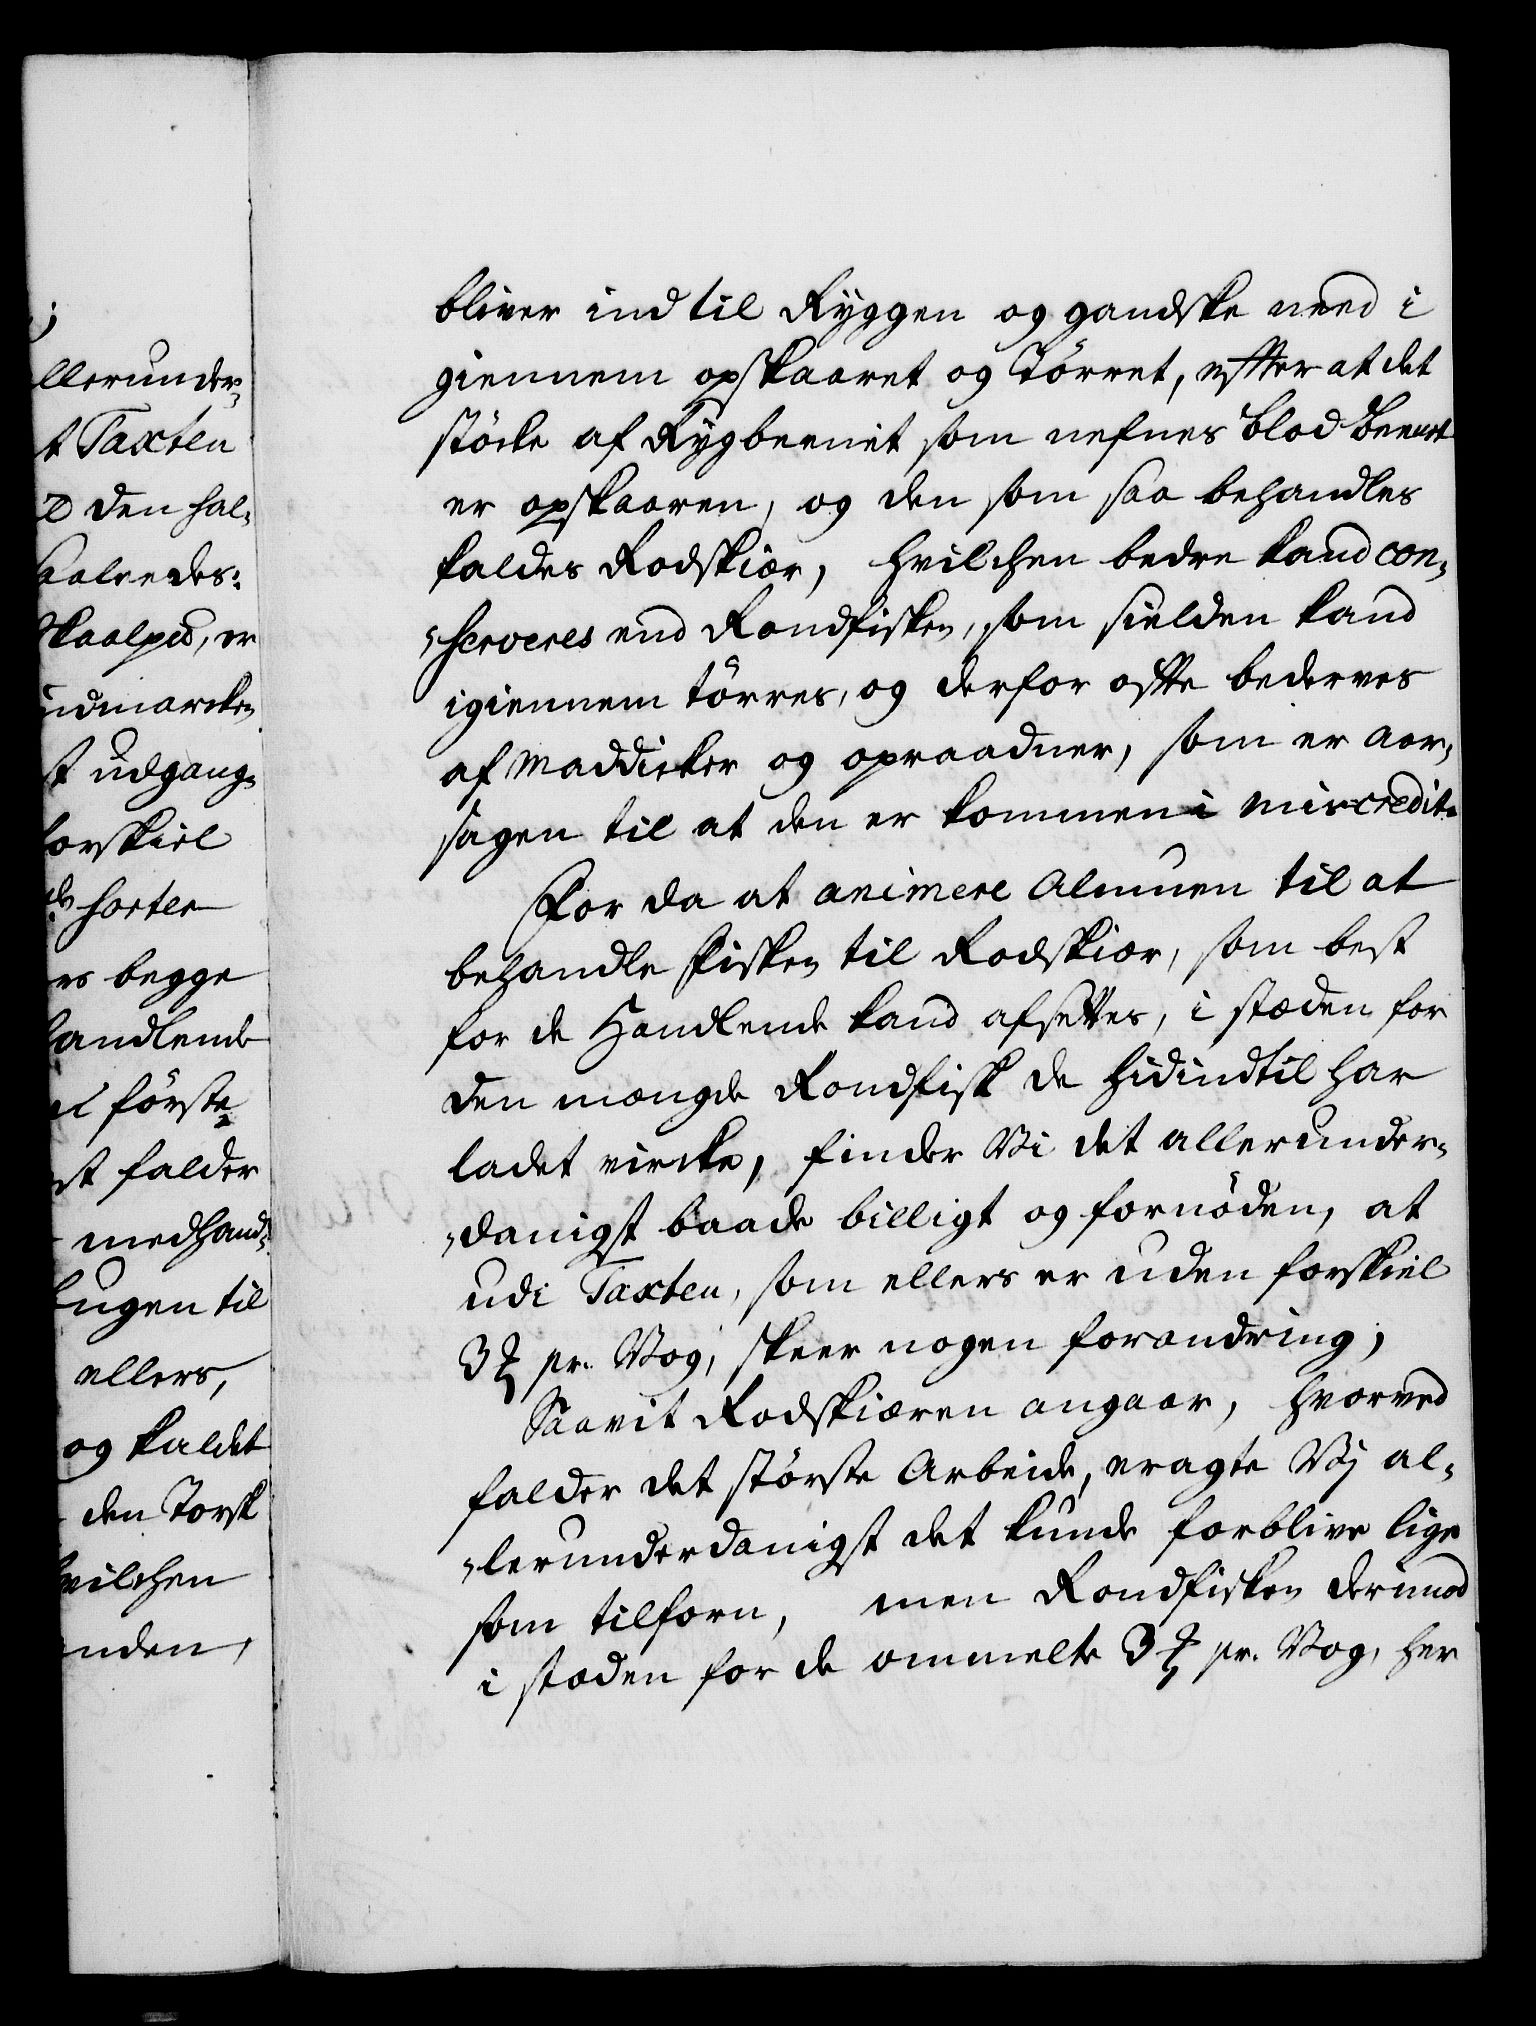 llerunder-
t Taxten
D den hal-
aaleedes:
Skaalped, er
indmarcken
st udgang-
forskiel
horter
rs begge
handlende
første
st falder
medhand-
bugen til
ellers,
og kaldet
den Torsk
hvilchen
nden,
bliver ind til Ryggen og gandske need i
giennem opskaaret og Tørret, effter at det
støcke af Rygbeenet som nefnes Blod Beenet
er opskaaren, og den som saa behandles
kaldes Rodskiær, hvilchen bedre kand con-
-serveres end Rondfisken, som sielden kand
igiennem tørres, og derfor offte bederves
af Maddicker og opraadner, som er aar-
sagen til at den er kommen i miscredit.
For da at animere Almuen til at
behandle Fisken til Rodskiær, som best
for de Handlende kand afsettes, i stæden for
den mængde Rondfisk de hidindtil har
ladet vircke, finder Vi det allerunder-
-danigst baade billigt og fornøden, at
udi Taxten, som ellers er uden forskiel
3 ℔ pr. Vog, skeer nogen forandring,
Saavit Rodskiæren angaar, hvorved
falder det største Arbeide, eragte Vj al-
-lerunderdanigst det kunde forblive lige
som tilforn, men Rondfisken derimod
i stæden for de ommelte 3 ℔ pr. Vog, her